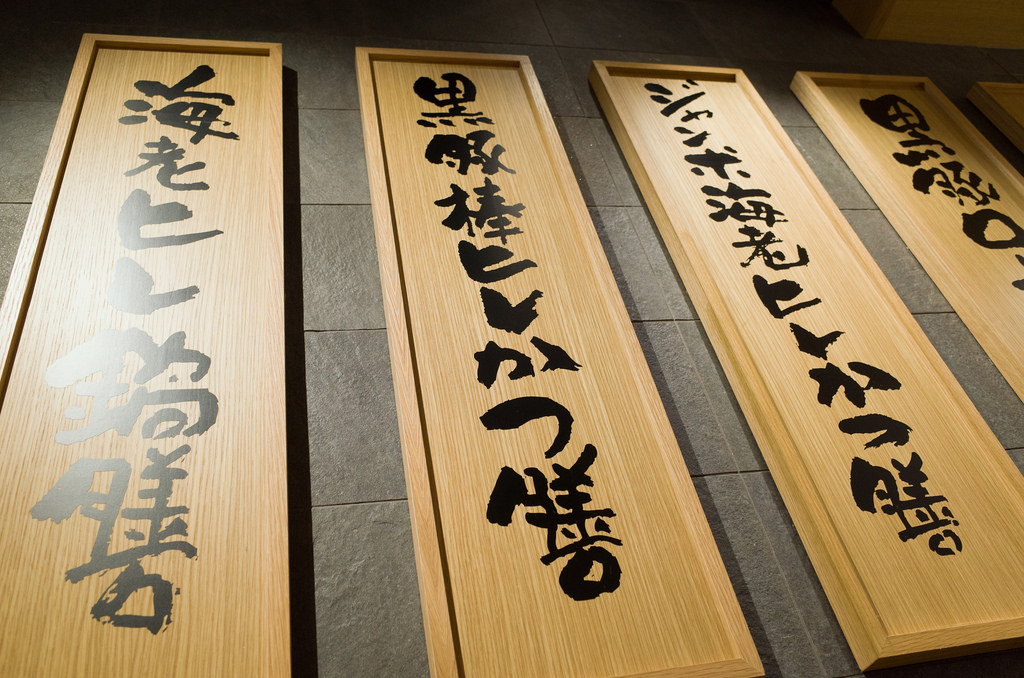 海老ヒレ鍋膳
黒豚棒ヒレかつ膳
ジャンボ海老ヒレかつ膳
黒豚ロ